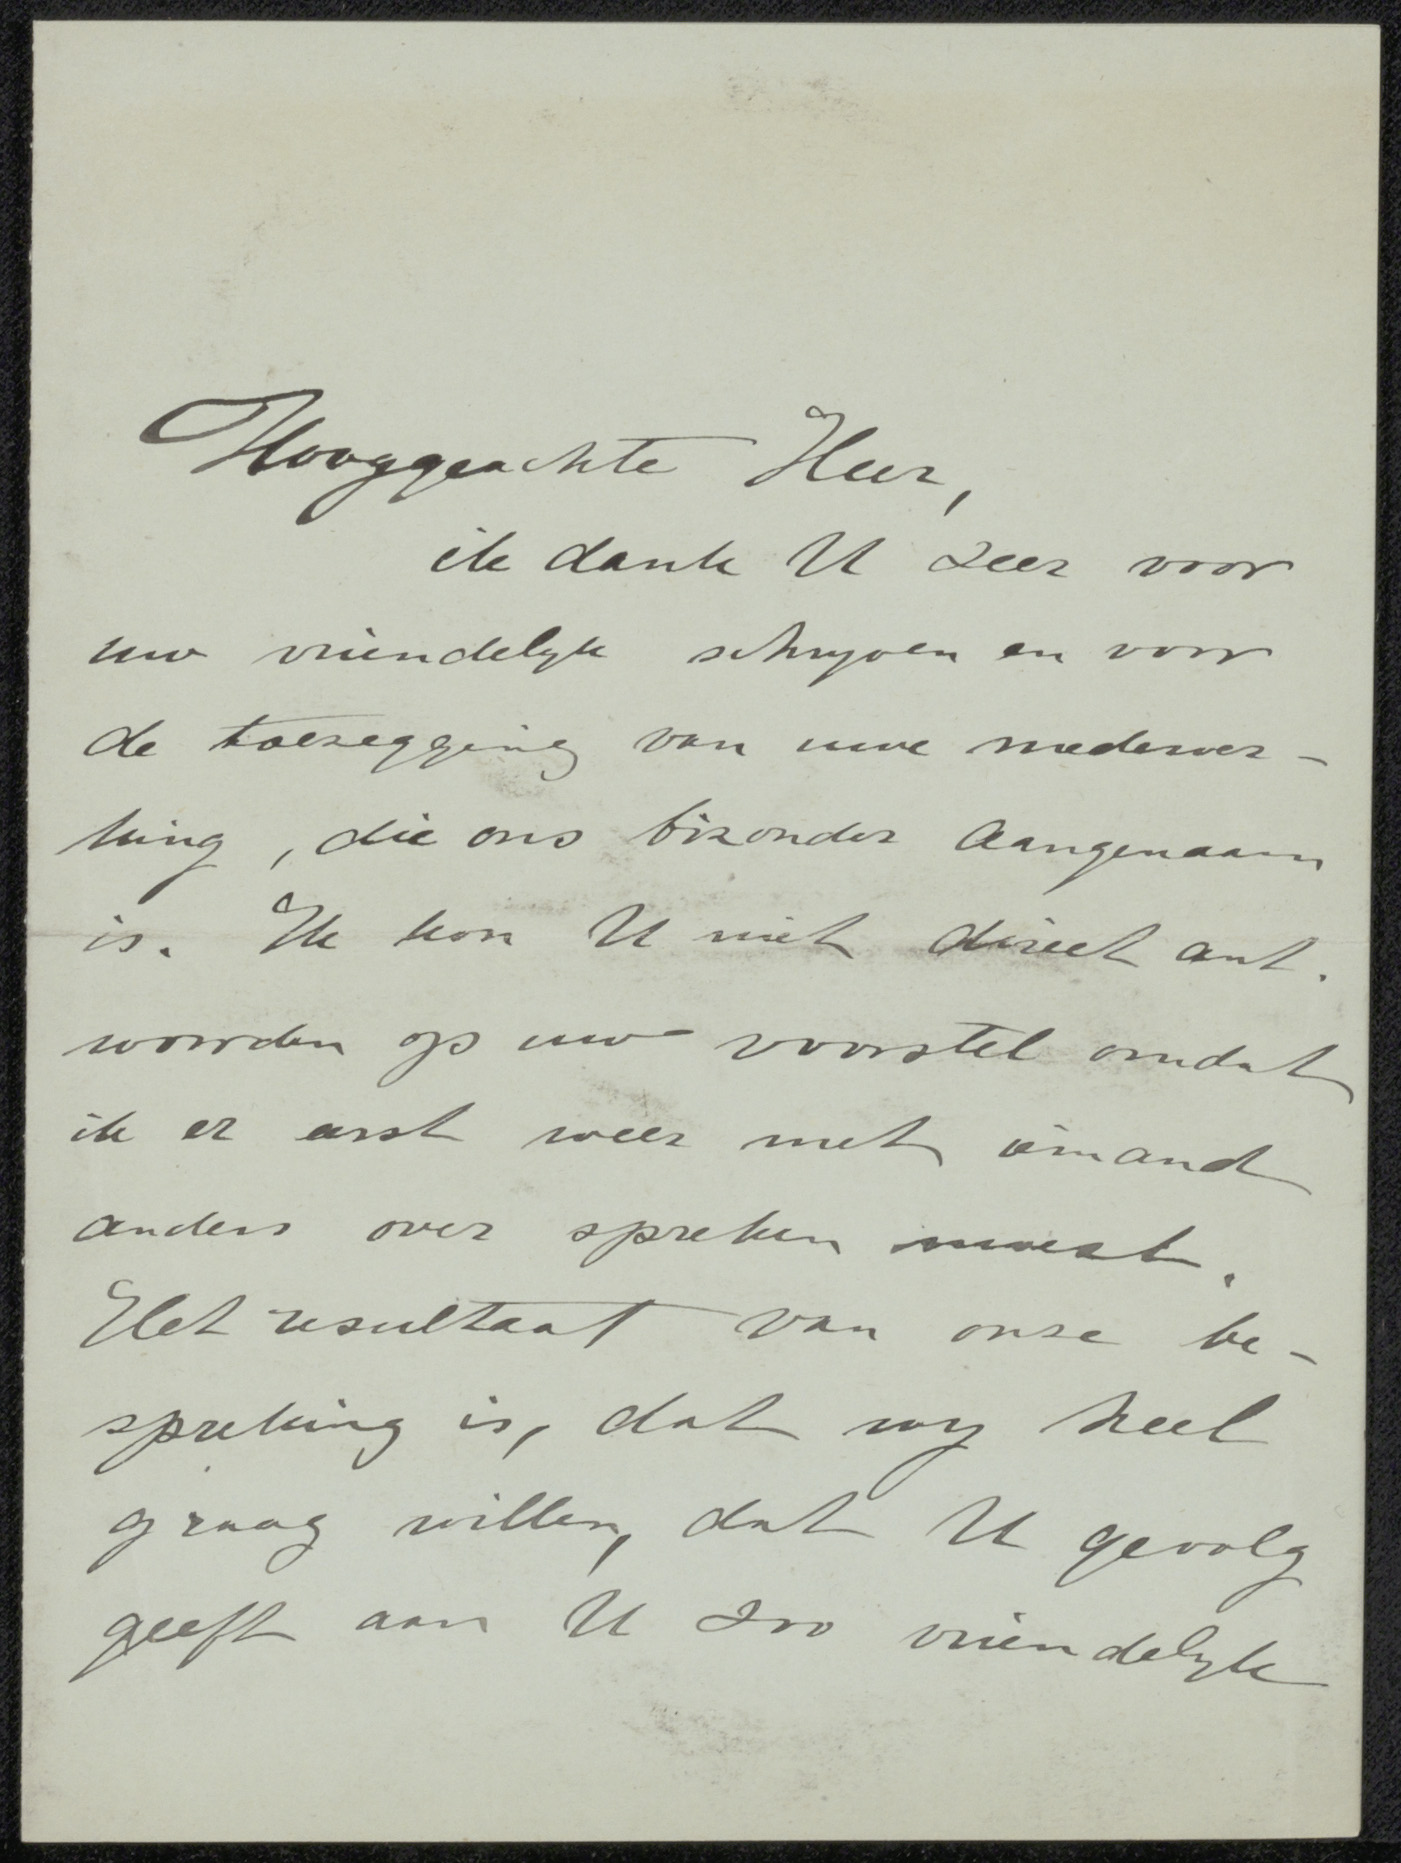 Hooggeachte Heer,
ik dank U zeer voor
uw vriendelyk schryven en voor
de toezegging van uwe medewer-
king, die ons bizonder aangenaam
is. Ik kon U niet direct ant.
woorden op uw voorstel omdat
ik er eerst weer met iemand
anders over spreken moest.
Het resultaat van onze be-
spreking is, dat wy heel
graag willen, dat U gevolg
geeft aan U zoo vriendelyk